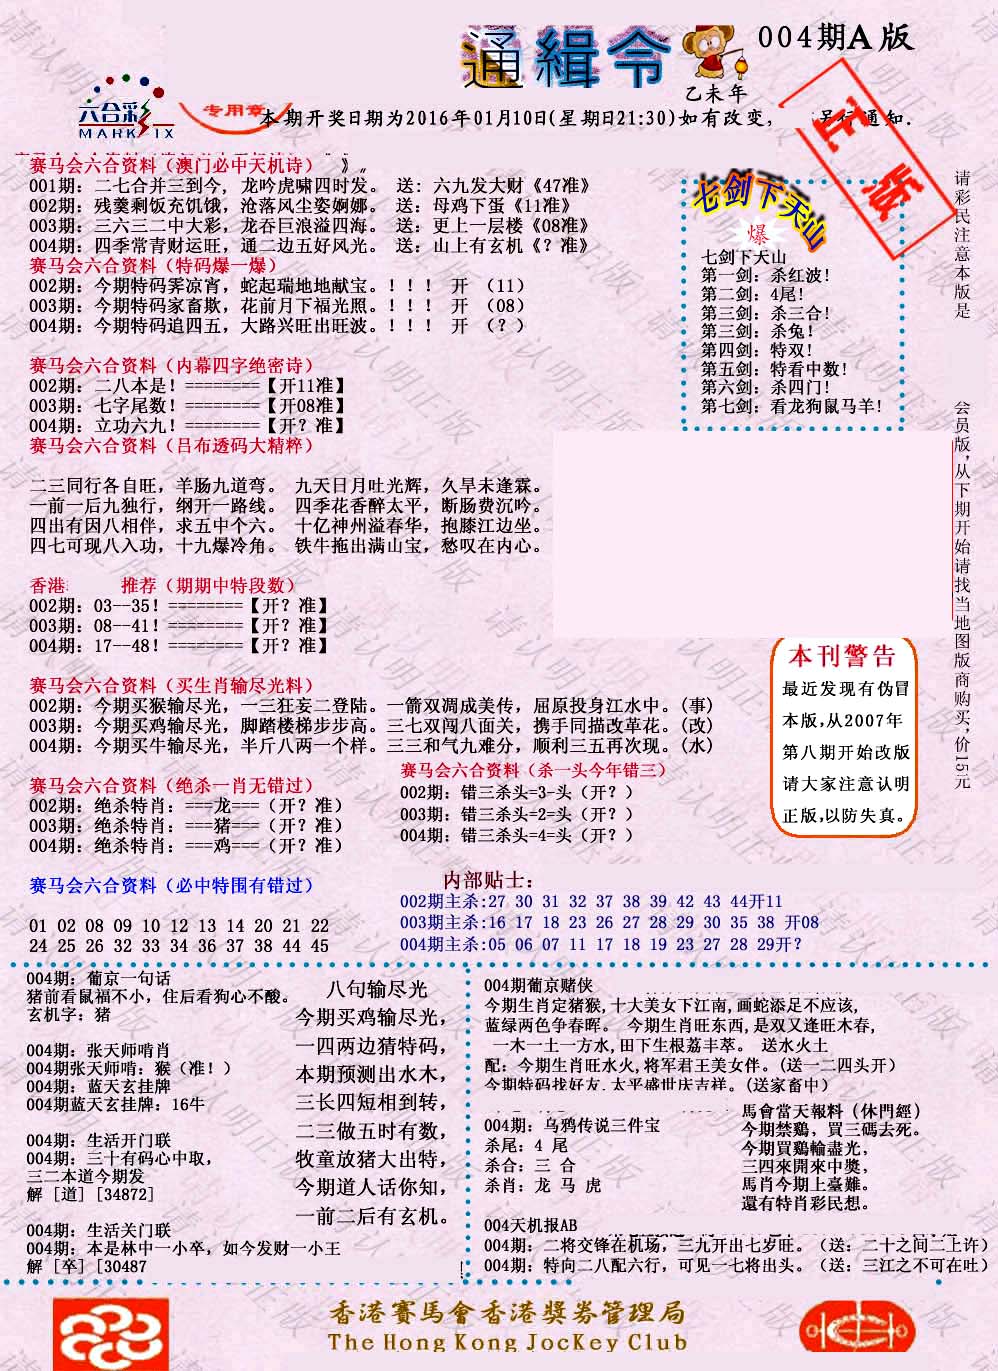 通緝令
004期A版
乙未年
六合彩
MARK SIX
专用章
本期开奖日期为2016年01月10日(星期日21:30)如有改变,
行通知.
赛马会六合资料（澳门必中天机诗）
001期: 二七合并三到今, 龙吟虎啸四时发。 送: 六九发大财《47准》
002期: 残羹剩饭充饥饿，沧落风尘姿婀娜。 送: 母鸡下蛋《11准》
003期: 三六三二中大彩，龙吞巨浪溢四海。 送: 更上一层楼《08准》
004期: 四季常青财运旺，通二边五好风光。 送: 山上有玄机《? 准》
赛马会六合资料（特码爆一爆）
002期: 今期特码霁凉宵，蛇起瑞地地献宝。！！！ 开 （11）
003期: 今期特码家畜欺，花前月下福光照。！！！ 开 （08）
004期: 今期特码追四五，大路兴旺出旺波。！！！ 开 （？）
赛马会六合资料（内幕四字绝密诗）
002期: 二八本是! ========【开11准】
003期: 七字尾数! ========【开08准】
004期: 立功六九! ========【开? 准】
赛马会六合资料（吕布透码大精粹）
二三同行各自旺，羊肠九道弯。 九天日月吐光辉，久旱未逢霖。
一前一后九独行，纲开一路线。 四季花香醉太平，断肠费沉吟。
四出有因八相伴，求五中个六。 十亿神州溢春华，抱膝江边坐。
四七可现八入功，十九爆冷角。 铁牛拖出满山宝，愁叹在内心。
香港 推荐（期期中特段数）
002期: 03--35! ========【开? 准】
003期: 08--41! ========【开? 准】
004期: 17--48! ========【开? 准】
赛马会六合资料（买生肖输尽光料）
002期: 今期买猴输尽光，一三狂妄二登陆。一箭双凋成美传，屈原投身江水中。(事)
003期: 今期买鸡输尽光，脚踏楼梯步步高。三七双闯八面关，携手同描改革花。(改)
004期: 今期买牛输尽光，半斤八两一个样。三三和气九难分，顺利三五再次现。(水)
赛马会六合资料（绝杀一肖无错过）
002期: 绝杀特肖: ===龙===（开? 准）
003期: 绝杀特肖: ===猪===（开? 准）
004期: 绝杀特肖: ===鸡===（开? 准）
赛马会六合资料（杀一头今年错三）
002期: 错三杀头=3-头（开? ）
003期: 错三杀头=2=头（开? ）
004期: 错三杀头=4=头（开? ）
赛马会六合资料（必中特围有错过）
01 02 08 09 10 12 13 14 20 21 22
24 25 26 32 33 34 36 37 38 44 45
内部贴士:
002期主杀:27 30 31 32 37 38 39 42 43 44开11
003期主杀:16 17 18 23 26 27 28 29 30 35 38 开08
004期主杀:05 06 07 11 17 18 19 23 27 28 29开?
七剑下天山
爆
七剑下天山
第一剑: 杀红波!
第二剑: 4尾!
第三剑: 杀三合!
第三剑: 杀兔!
第四剑: 特双!
第五剑: 特看中数!
第六剑: 杀四门!
第七剑: 看龙狗鼠马羊!
请彩民注意本版是
会员版,从下期开始请找当地图版商购买,价15元
本刊警告
最近发现有伪冒
本版,从2007年
第八期开始改版
请大家注意认明
正版,以防失真。
004期: 葡京一句话
猪前看鼠福不小，住后看狗心不酸。
玄机字: 猪
004期: 张天师啃肖
004期张天师啃: 猴（准! ）
004期: 蓝天玄挂牌
004期蓝天玄挂牌: 16牛
004期: 生活开门联
004期: 三十有码心中取，
三二本道今期发
解 [道] [34872]
004期: 生活关门联
004期: 本是林中一小卒，如今发财一小王
解 [卒] [30487
八句输尽光
今期买鸡输尽光，
一四两边猜特码，
本期预测出水木，
三长四短相到转，
二三做五时有数，
牧童放猪大出特，
今期道人话你知，
一前二后有玄机。
004期葡京赌侠
今期生肖定猪猴,十大美女下江南,画蛇添足不应该,
蓝绿两色争春晖。 今期生肖旺东西,是双又逢旺木春,
一木一土一方水,田下生根荔丰萃。 送水火土
配: 今期生肖旺水火,将军君王美女伴。(送一二四头开)
今期特码找好友,太平盛世庆吉祥。(送家畜中)
004期: 乌鸦传说三件宝
杀尾: 4 尾
杀合: 三 合
杀肖: 龙 马 虎
馬會當天報料（休門經）
今期禁鷄，買三碼去死。
今期買鷄輸盡光，
三四來開來中奬，
馬肖今期上臺難。
還有特肖彩民想。
004天机报AB
004期: 二将交锋在机场，三九开出七岁旺。（送: 二十之间二上许）
004期: 特向二八配六行，可见一七将出头。（送: 三江之不可在吐）
香港賽馬會香港獎券管理局
The Hong Kong Jockey Club